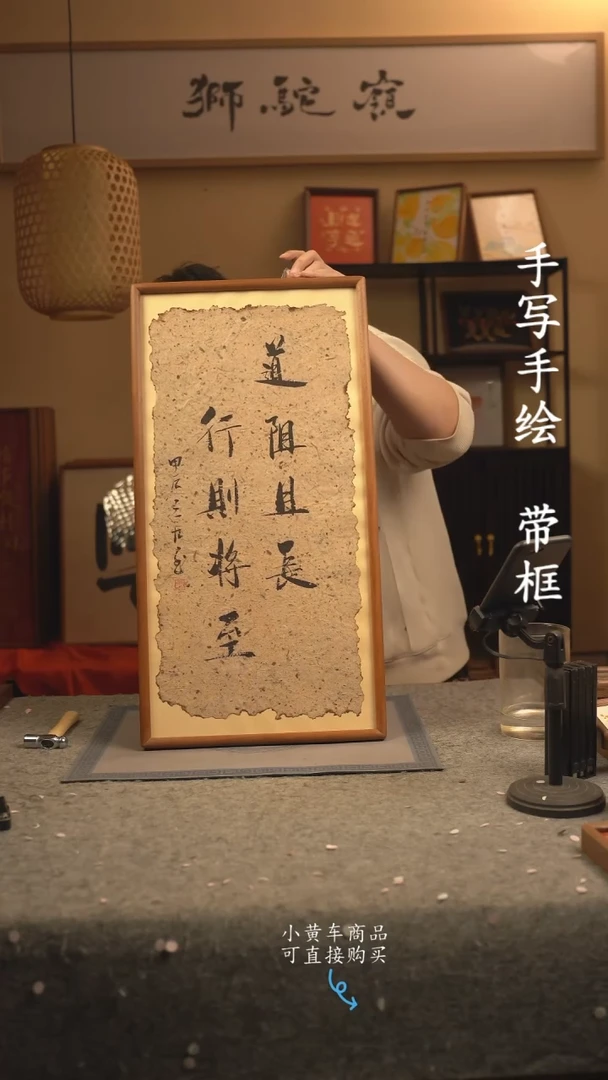 獅駝嶺
道阻且長
行則將至
手写手绘 带框
小黄车商品
可直接购买